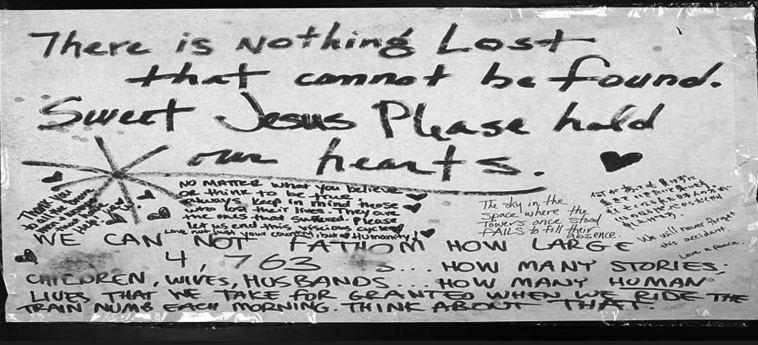 There is Nothing Lost
that cannot be found.
Sweet Jesus Please hold
our hearts.
Thank you
NO MATTER what you believe
or think to be true
always keep in mind those
who lost their lives. They are
the ones that suffered. Please
let us end this vicious cycle
Love not just your country, love Humanity!
The sky in the
space where the
Towers once stood
FAILS to fill their
absence.
We will never forget
this accident.
Love & Peace.
WE CAN NOT FATHOM HOW LARGE
4,763 IS... HOW MANY STORIES,
CHILDREN, WIVES, HUSBANDS. HOW MANY HUMAN
LIVES THAT WE TAKE FOR GRANTED WHEN WE RIDE THE
TRAIN NUMB EACH MORNING. THINK ABOUT THAT.